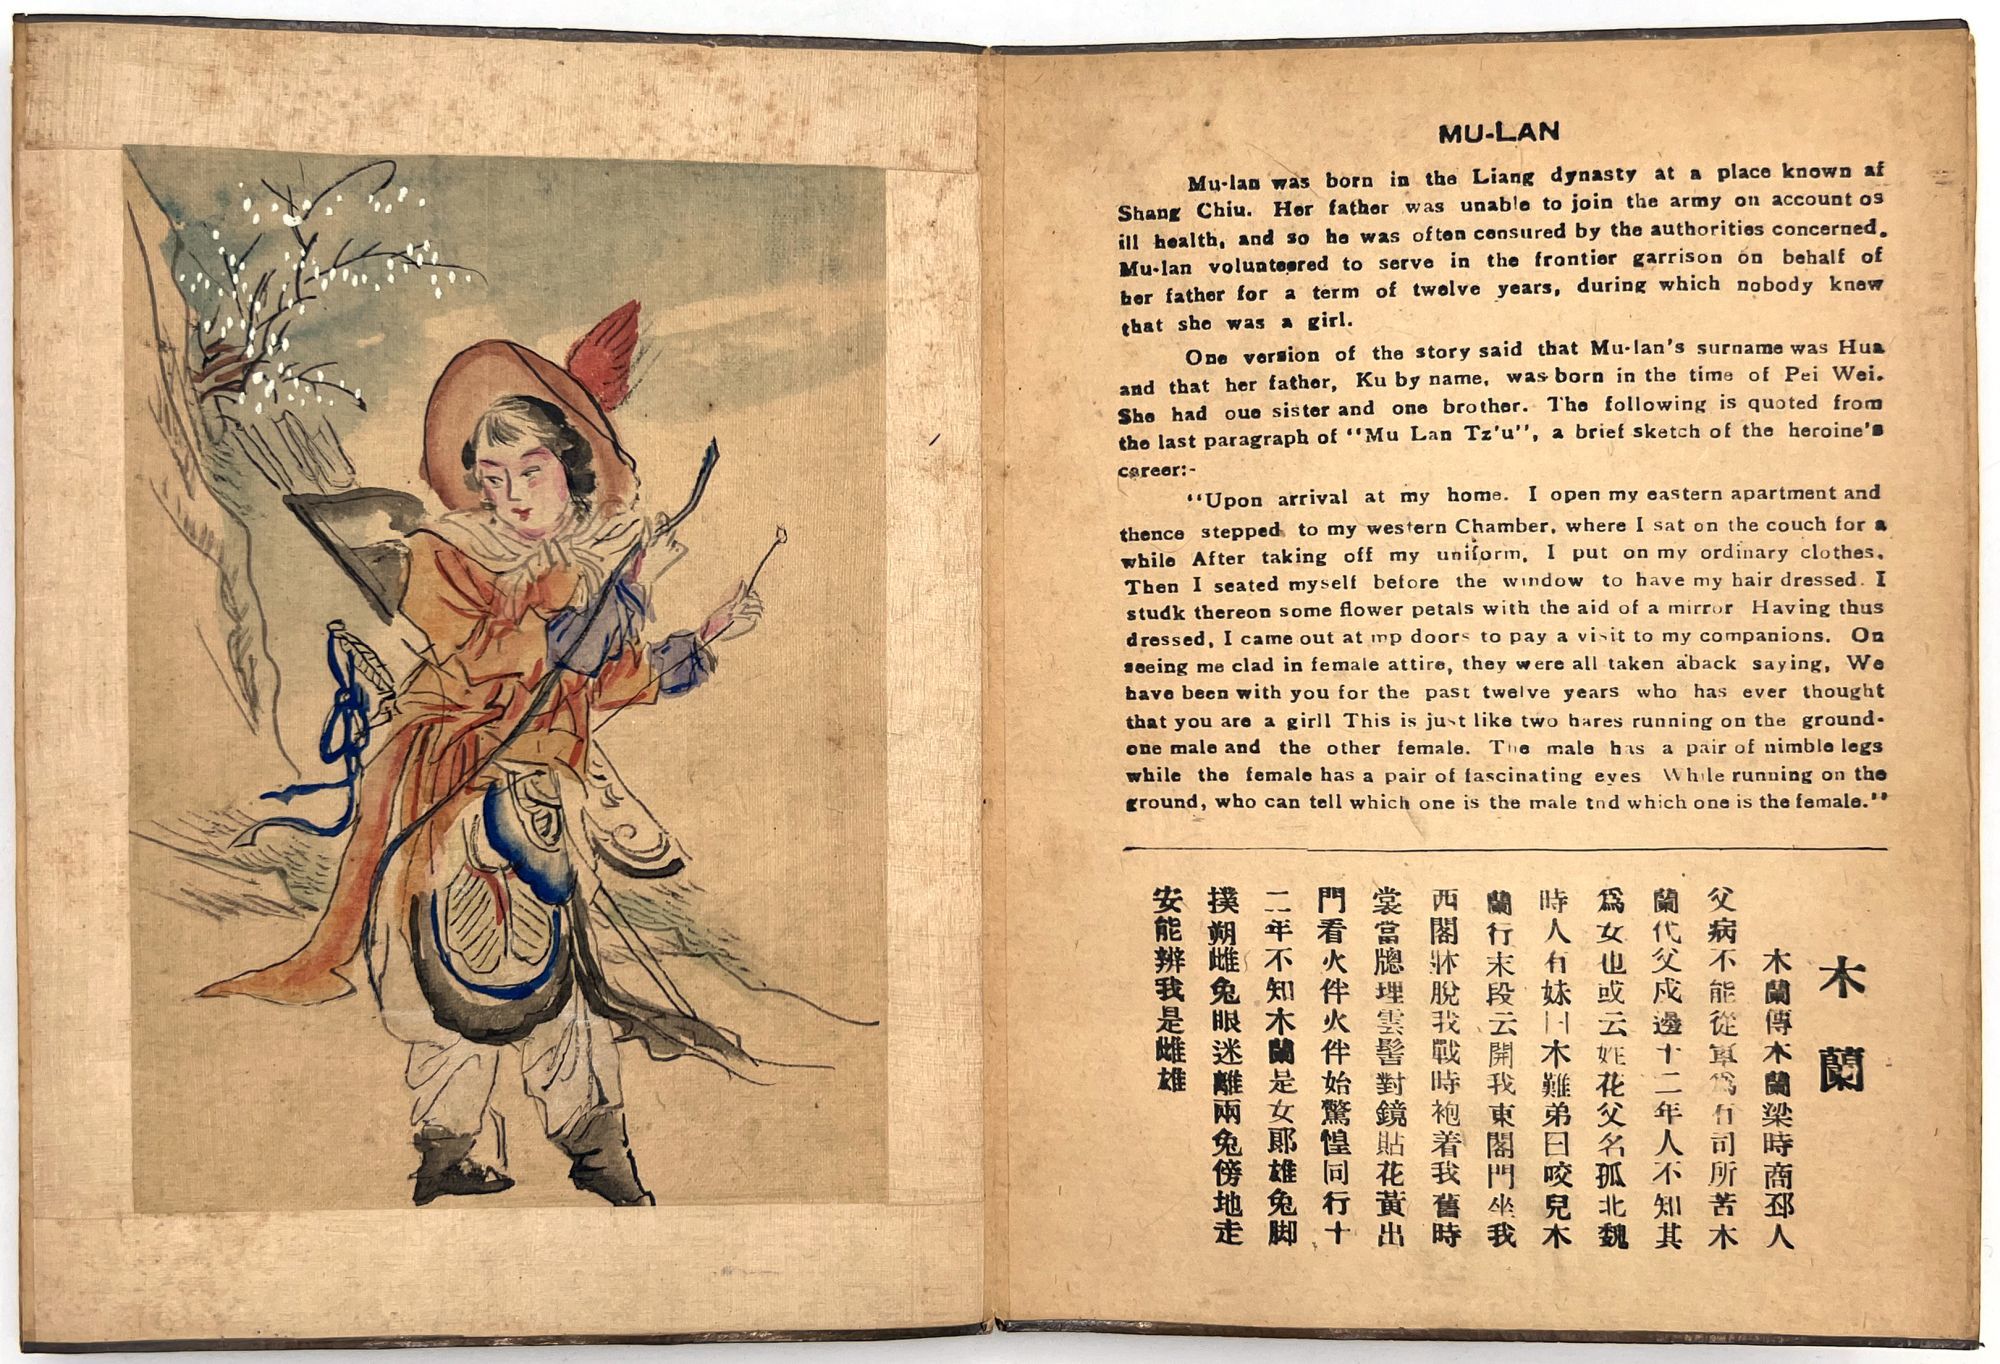 MU-LAN
Mu-lan was born in the Liang dynasty at a place known af
Shang Chiu. Her father was unable to join the army on account os
ill health, and so he was often censured by the authorities concerned.
Mu-lan volunteered to serve in the frontier garrison on behalf of
her father for a term of twelve years, during which nobody knew
that she was a girl.
One version of the story said that Mu-lan's surname was Hua
and that her father, Ku by name, was born in the time of Pei Wei.
She had oue sister and one brother. The following is quoted from
the last paragraph of "Mu Lan Tz'u", a brief sketch of the heroine's
career:-
"Upon arrival at my home. I open my eastern apartment and
thence stepped to my western Chamber, where I sat on the couch for a
while After taking off my uniform, I put on my ordinary clothes.
Then I seated myself before the window to have my hair dressed. I
studk thereon some flower petals with the aid of a mirror Having thus
dressed, I came out at mp doors to pay a visit to my companions. On
seeing me clad in female attire, they were all taken aback saying, We
have been with you for the past twelve years who has ever thought
that you are a girll This is just like two hares running on the ground-
one male and the other female. The male has a pair of nimble legs
while the female has a pair of fascinating eyes While running on the
ground, who can tell which one is the male tnd which one is the female."
木蘭
木蘭傳木蘭梁時商邳人
父病不能從軍爲有司所苦木
蘭代父戍邊十二年人不知其
爲女也或云姓花父名孤北魏
時人有妹曰木難弟曰咬兒木
蘭行末段云開我東閣門坐我
西閣牀脫我戰時袍着我舊時
裳當牕理雲髻對鏡貼花黃出
門看火伴火伴始驚惶同行十
二年不知木蘭是女郎雄兔脚
撲朔雌兔眼迷離兩兔傍地走
安能辨我是雌雄